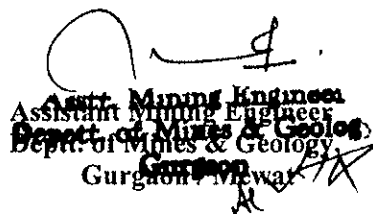 Asstt. Mining Engineer
Assistant Mining Engineer
Depott. of Mines & Geolog
Deptt. of Mines & Geology,
Gurgaon
Gurgaon / Mewat